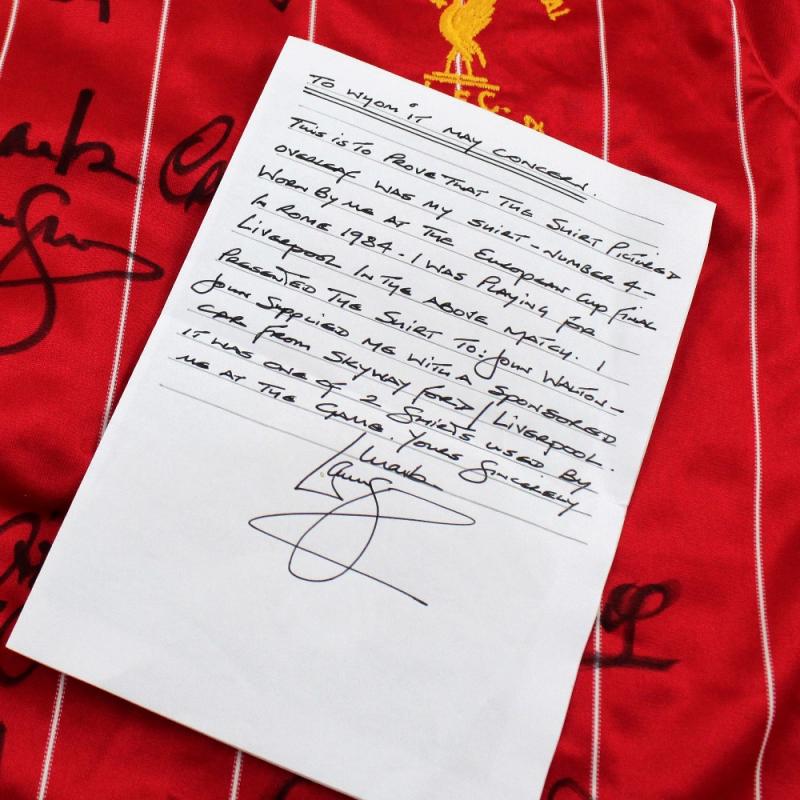 To Whom it May Concern.
This is to Prove That The Shirt Pictured
overleaf was my shirt - Number 4 -
Worn By me at The European Cup Final
In Rome 1984. I was Playing for
Liverpool In the above match. I
Presented The Shirt to: John Walton -
John Supplied me with a sponsored
car from Skyway Ford / Liverpool.
It was one of 2 Shirts used By
me at the Game. Yours Sincerely
Mark
Mark
L.F.C.